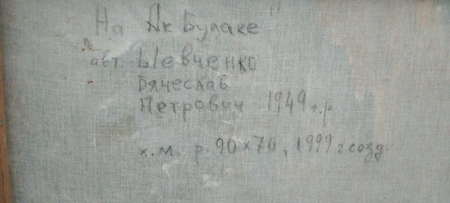 На Ак Булаке"
авт Шевченко
Вячеслав
Петрович 1949 г.р
х.м. р. 90×70, 1999 г созд.